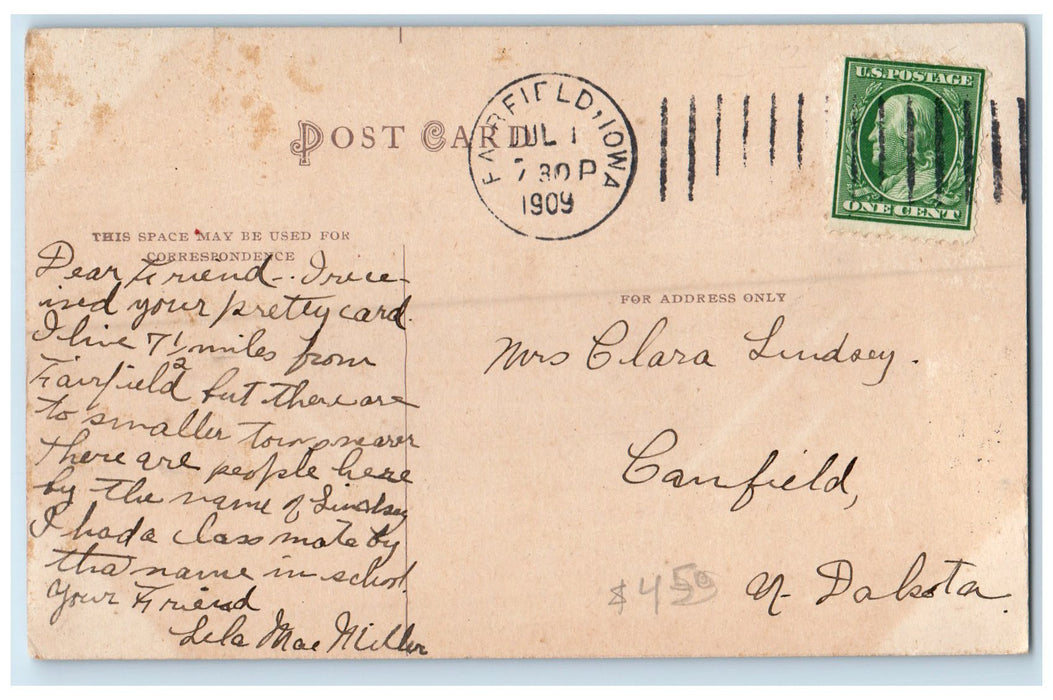 POST CARD
FAIRFIELD, IOWA
JUL 1
7 30 P
1909
U.S. POSTAGE
ONE CENT
THIS SPACE MAY BE USED FOR
CORRESPONDENCE
Dear Friend - I rece-
ived your pretty card.
I live 7 1/2 miles from
Fairfield but there are
to smaller towns nearer
There are people here
by the name of Lindsey
I had a class mate by
tha name in school.
Your Friend
Lela Mae Miller
FOR ADDRESS ONLY
Mrs Clara Lindsey.
Canfield,
N- Dakota.
$4.50